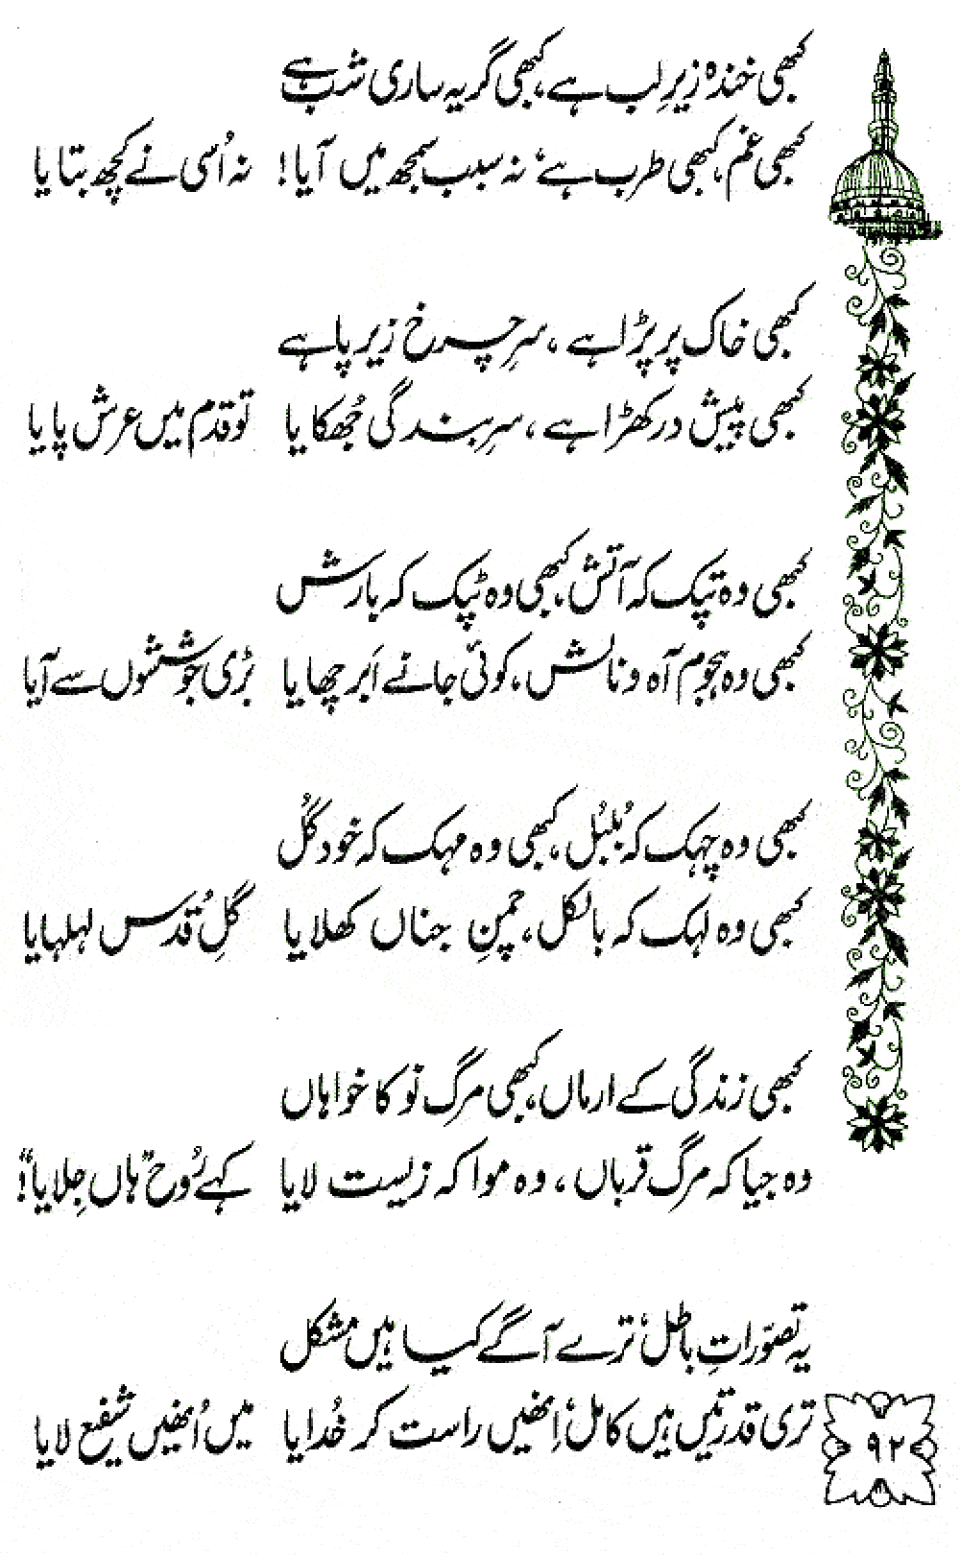 کبھی خندہ زیرِ لب ہے، کبھی گریہ ساری شب ہے
کبھی غم، کبھی طرب ہے، نہ سبب سمجھ میں آیا! نہ اُسی نے کچھ بتایا
کبھی خاک پر پڑا ہے، سرِ چرخ زیرِ پا ہے
کبھی پیش در کھڑا ہے، سرِ بندگی جُھکایا تو قدم میں عرش پایا
کبھی وہ تپک کہ آتش، کبھی وہ ٹپک کہ بارش
کبھی وہ ہجومِ آہ و نالش، کوئی جانے اَبر چھایا بڑی جوششوں سے آیا
کبھی وہ چہک کہ بُلبُل، کبھی وہ مہک کہ خود گُل
کبھی وہ لہک کہ بالکل، چمنِ جناں کھلایا گلِ قُدس لہلہایا
کبھی زندگی کے ارماں، کبھی مرگِ نَو کا خواہاں
وہ جیا کہ مرگ قرباں، وہ موا کہ زیست لایا کہے رُوح "ہاں جِلایا"!
یہ تصوّراتِ باطل، ترے آگے کیا ہیں مشکل
تری قدرتیں ہیں کامل، اِنھیں راست کر خُدایا میں اُنھیں شفیع لایا
۹۲